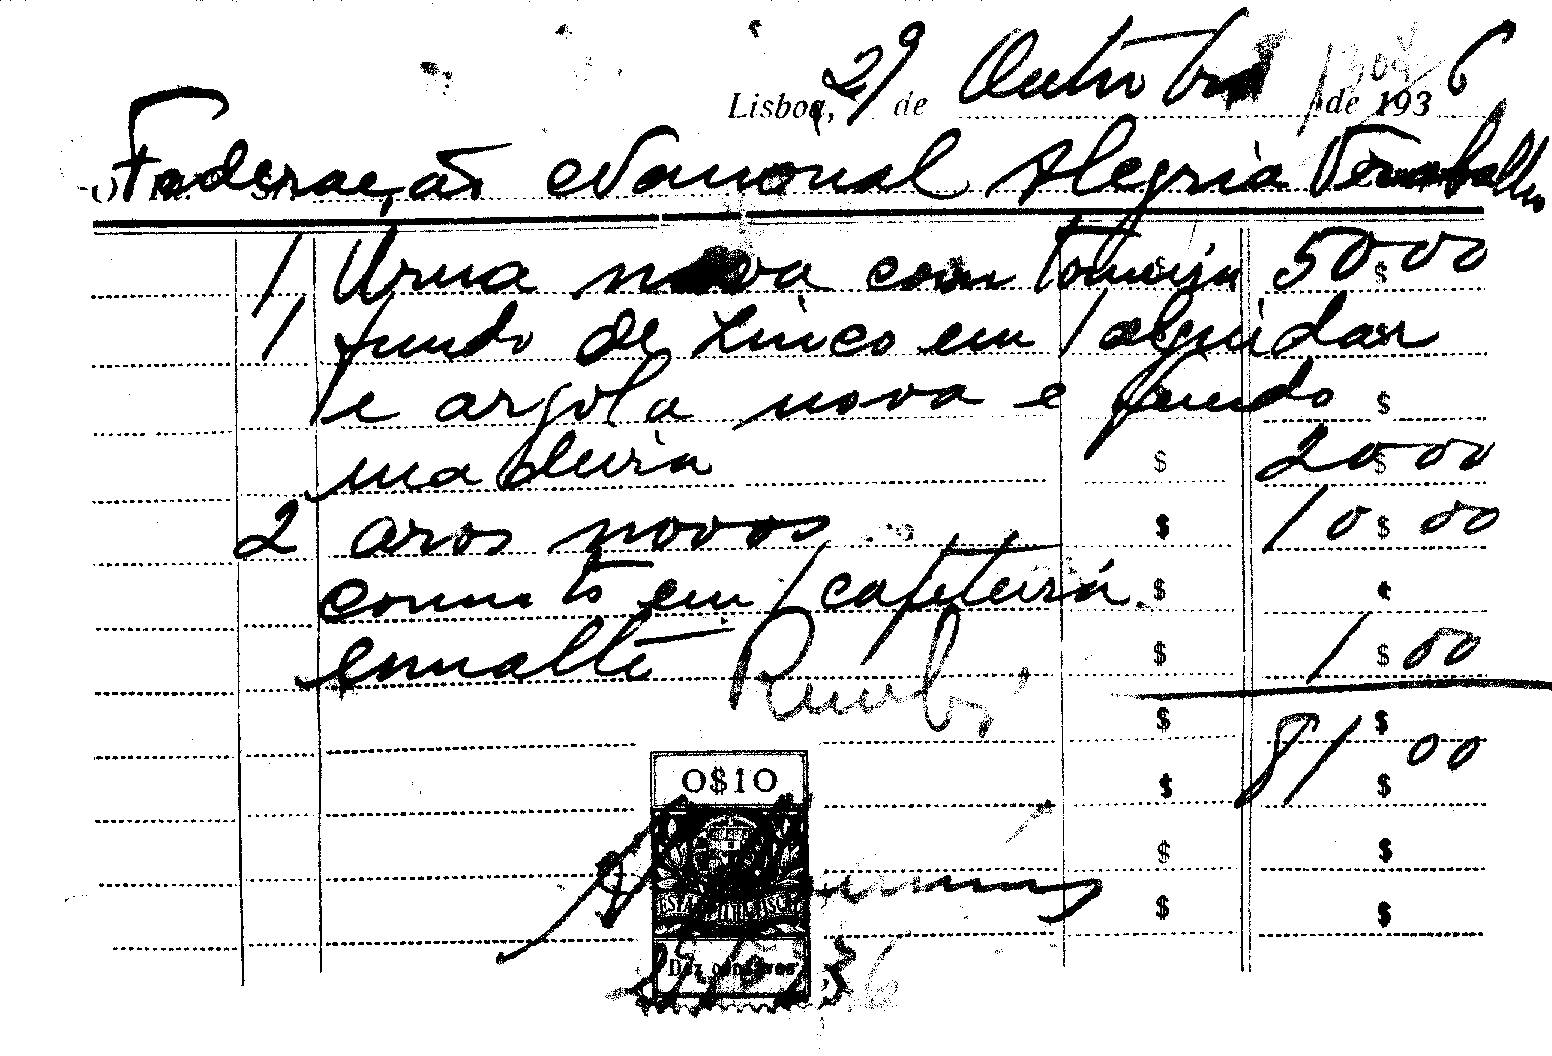 Lisboa, 29 de Outubro de 1936
Federação Nacional Alegria Trabalho
1 Urna nova com torneira 50$00
1 fundo de zinco em 1 alguidar
e argola nova e fundo $
madeira $ 20$00
2 aros novos $ 10$00
concerto em 1 cafeteira $
esmalte $ 1$00
$ $
81 00
O$10 $ $
$ $
$ $
Dez centavos